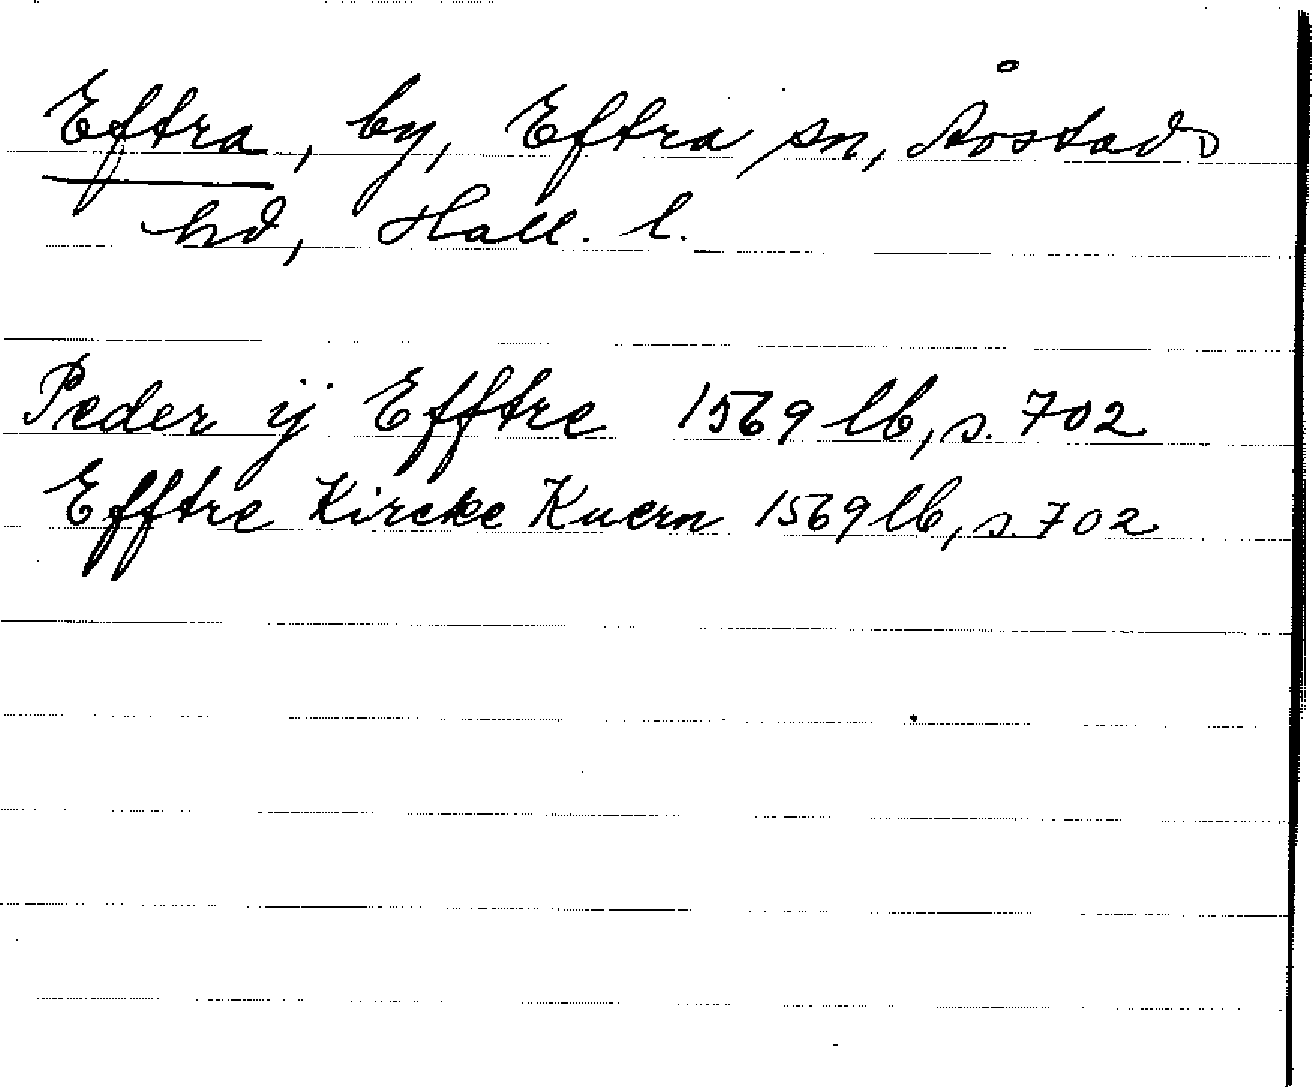 Eftra, by, Eftra sn, Årstads
hd, Hall. l.
Peder ij Efftre 1569 lb, s. 702
Efftre Kircke Kuern 1569 lb, s. 702